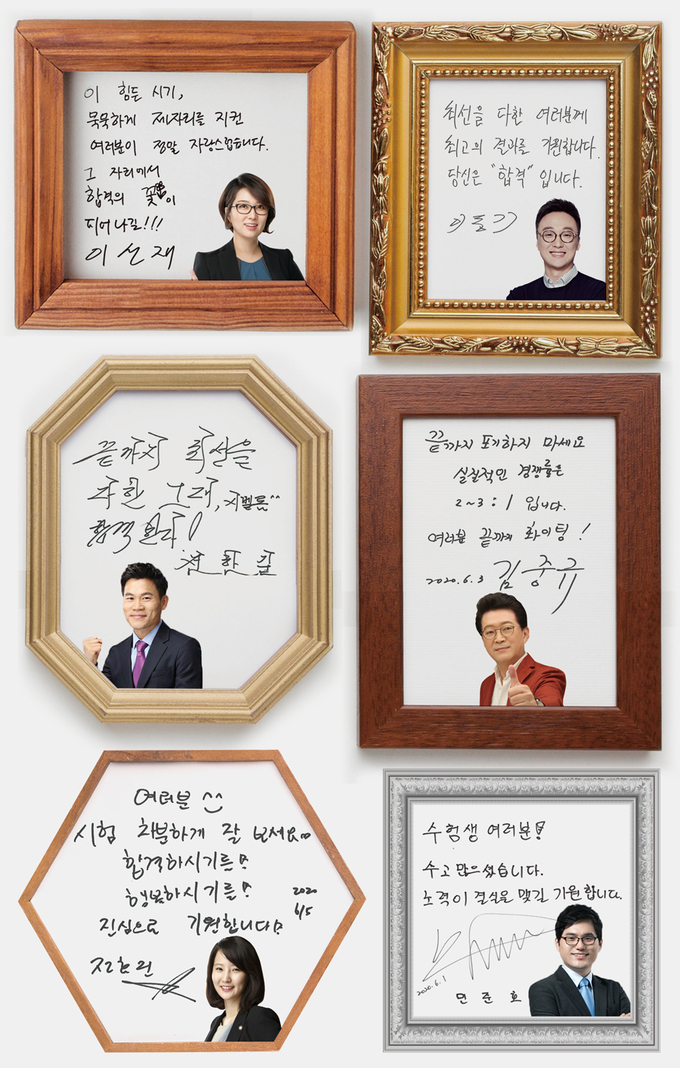 이 힘든 시기,
묵묵하게 제자리를 지킨
여러분이 정말 자랑스럽습니다.
그 자리에서
합격의 꽃이
피어나길!!!
이선재
최선을 다한 여러분께
최고의 결과를 기원합니다.
당신은 "합격"입니다.
끝까지 최선을
다한 그대,
합격한다!
전한길
끝까지 포기하지 마세요
실질적인 경쟁률은
2~3:1 입니다.
여러분 끝까지 화이팅!
2020.6.3 김중규
여러분 ^^
시험 차분하게 잘 보세요~
합격하시기를!
행복하시기를!
2020
6/5
진심으로 기원합니다
수험생 여러분!
수고 많으셨습니다.
노력이 결실을 맺길 기원합니다.
2020.6.1
민준호